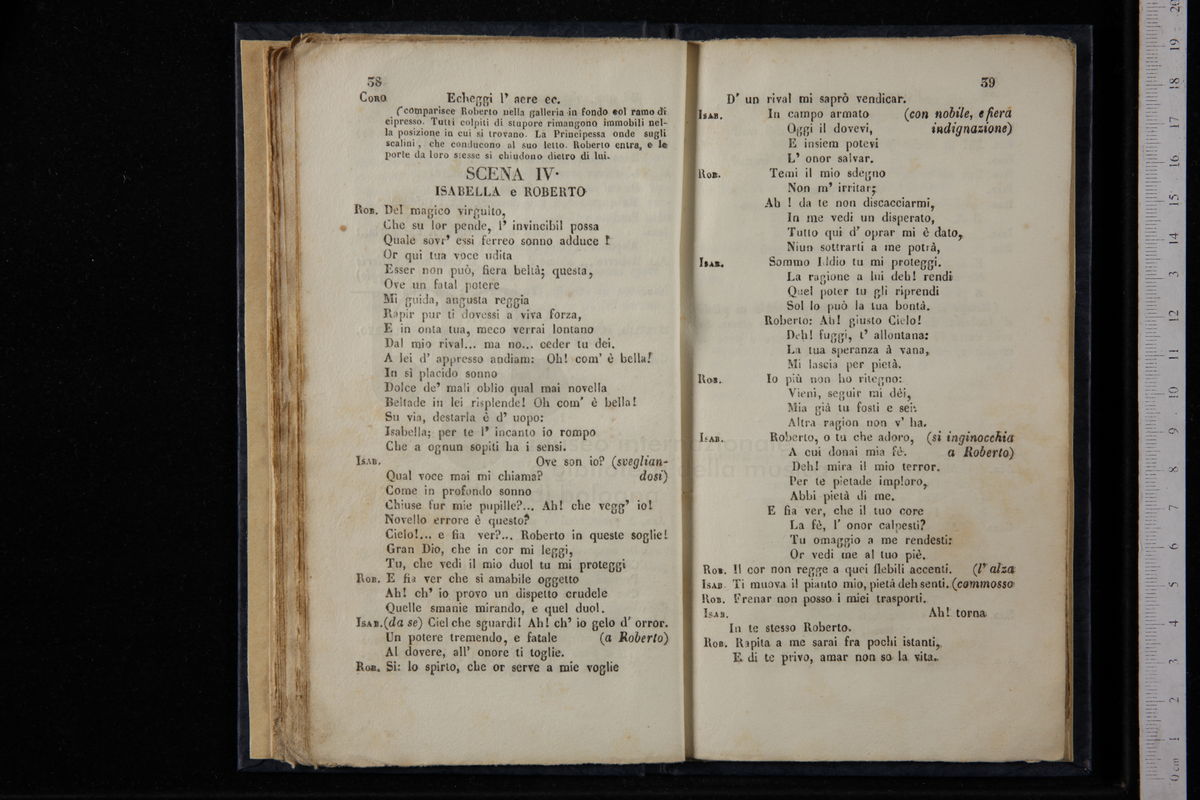 38
CORO Echeggi l' aere ec.
(comparisce Roberto nella galleria in fondo col ramo di
cipresso. Tutti colpiti di stupore rimangono immobili nel-
la posizione in cui si trovano. La Principessa onde sugli
scalini, che conducono al suo letto. Roberto entra, e le
porte da loro stesse si chiudono dietro di lui.
SCENA IV.
ISABELLA e ROBERTO
ROB. Del magico virgulto,
Che su lor pende, l' invincibil possa
Quale sovr' essi ferreo sonno adduce!
Or qui tua voce udita
Esser non può, fiera beltà; questa,
Ove un fatal potere
Mi guida, augusta reggia
Rapir pur ti dovessi a viva forza,
E in onta tua, meco verrai lontano
Dal mio rival... ma no... ceder tu dei.
A lei d' appresso andiam: Oh! com' è bella!
In sì placido sonno
Dolce de' mali oblio qual mai novella
Beltade in lei risplende! Oh com' è bella!
Su via, destarla è d' uopo:
Isabella; per te l' incanto io rompo
Che a ognun sopiti ha i sensi.
ISAB. Ove son io? (sveglian-
Qual voce mai mi chiama? dosi)
Come in profondo sonno
Chiuse fur mie pupille?... Ah! che vegg' io!
Novello errore è questo?
Cielo!... e fia ver?... Roberto in queste soglie!
Gran Dio, che in cor mi leggi,
Tu, che vedi il mio duol tu mi proteggi
ROB. E fia ver che sì amabile oggetto
Ah! ch' io provo un dispetto crudele
Quelle smanie mirando, e quel duol.
ISAB.(da se) Ciel che sguardi! Ah! ch' io gelo d' orror.
Un potere tremendo, e fatale (a Roberto)
Al dovere, all' onore ti toglie.
ROB. Si: lo spirto, che or serve a mie voglie
39
D' un rival mi saprò vendicar.
ISAB. In campo armato (con nobile, e fiera
Oggi il dovevi, indignazione)
E insiem potevi
L' onor salvar.
ROB. Temi il mio sdegno
Non m' irritar;
Ah ! da te non discacciarmi,
In me vedi un disperato,
Tutto qui d' oprar mi è dato,
Niun sottrarti a me potrà,
ISAB. Sommo Iddio tu mi proteggi.
La ragione a lui deh! rendi
Quel poter tu gli riprendi
Sol lo può la tua bontà.
Roberto: Ah! giusto Cielo!
Deh! fuggi, t' allontana:
La tua speranza à vana,
Mi lascia per pietà.
ROB. Io più non ho ritegno:
Vieni, seguir mi dêi,
Mia già tu fosti e sei.
Altra ragion non v' ha.
ISAB. Roberto, o tu che adoro, (si inginocchia
A cui donai mia fè. a Roberto)
Deh! mira il mio terror.
Per te pietade imploro,
Abbi pietà di me.
E fia ver, che il tuo core
La fè, l' onor calpesti?
Tu omaggio a me rendesti:
Or vedi me al tuo piè.
ROB. Il cor non regge a quei flebili accenti. (l' alza
ISAB. Ti muova il pianto mio, pietà deh senti. (commosso
ROB. Frenar non posso i miei trasporti.
ISAB. Ah! torna
In te stesso Roberto.
ROB. Rapita a me sarai fra pochi istanti,
E di te privo, amar non so la vita.